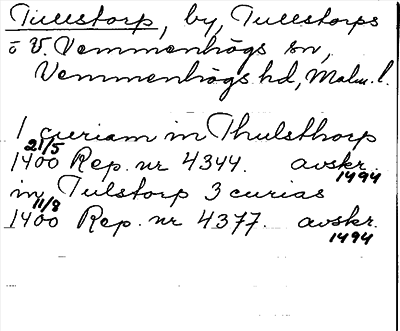 Tullstorp, by, Tullstorps
o V. Vemmenhögs sn,
Vemmenhögs hd, Malm. l.
1 curiam in Thulsthorp
21/5
1400 Rep. nr 4344. avskr.
1494
in Tulstorp 3 curias
11/8
1400 Rep. nr 4377. avskr.
1494